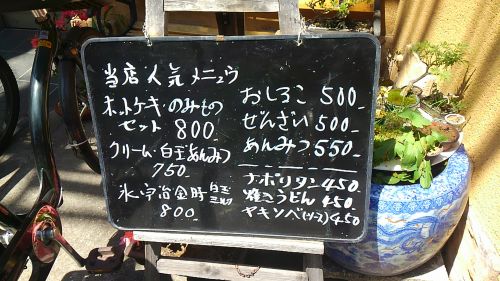 当店人気メニュウ
ホットケーキ・のみもの
セット 800
クリーム・白玉あんみつ
750
氷・宇治金時 白玉
ミルク
800
おしるこ 500-
ぜんざい 500-
あんみつ 550-
ナポリタン 450-
焼うどん 450-
ヤキソバ(ソース) 450